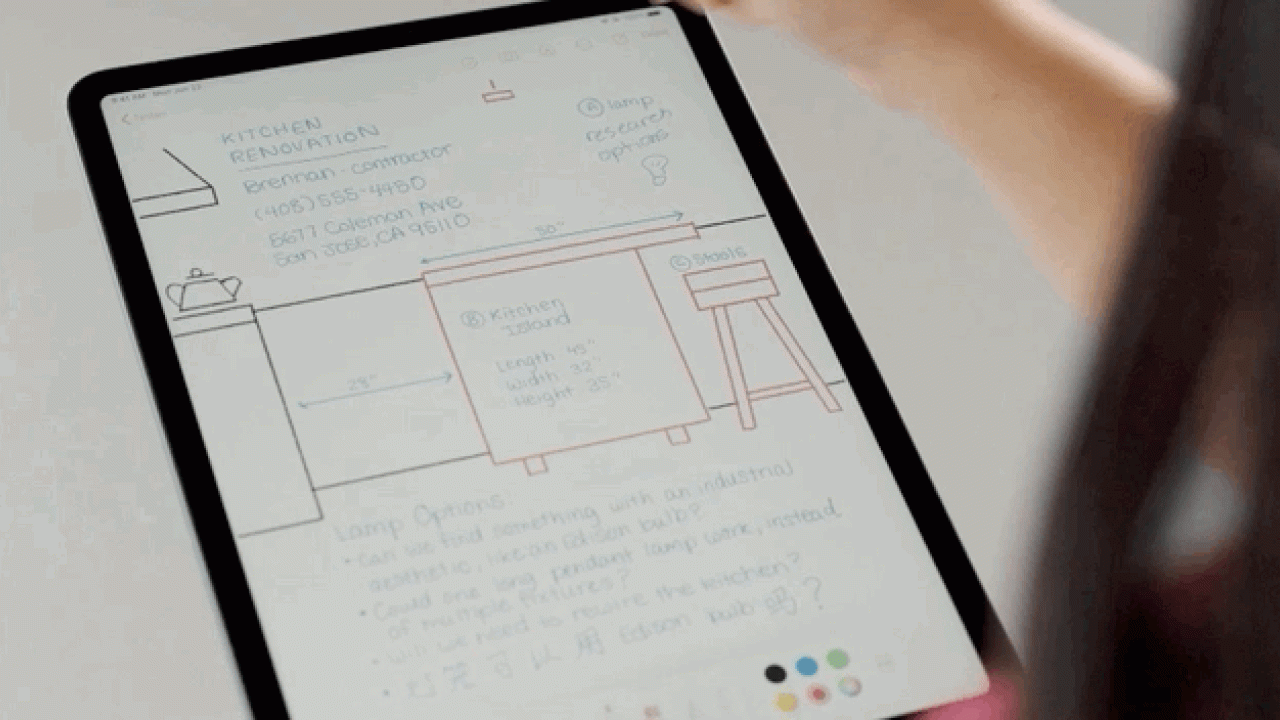 9:41 AM Mon Jun 22
KITCHEN
RENOVATION
Brennan-contractor
(408)555-4450
5677 Coleman Ave
San Jose, CA 95110
Ⓐ lamp
research
options
50"
Ⓒ Stools
Ⓑ Kitchen
Island
Length 45"
Width 32"
Height 35"
28"
Lamp Options:
• Can we find something with an industrial
aesthetic, like an Edison bulb?
• Could one long pendant lamp work, instead
of multiple fixtures?
• Will we need to rewire the kitchen?
• 可以用 Edison bulb 吗?